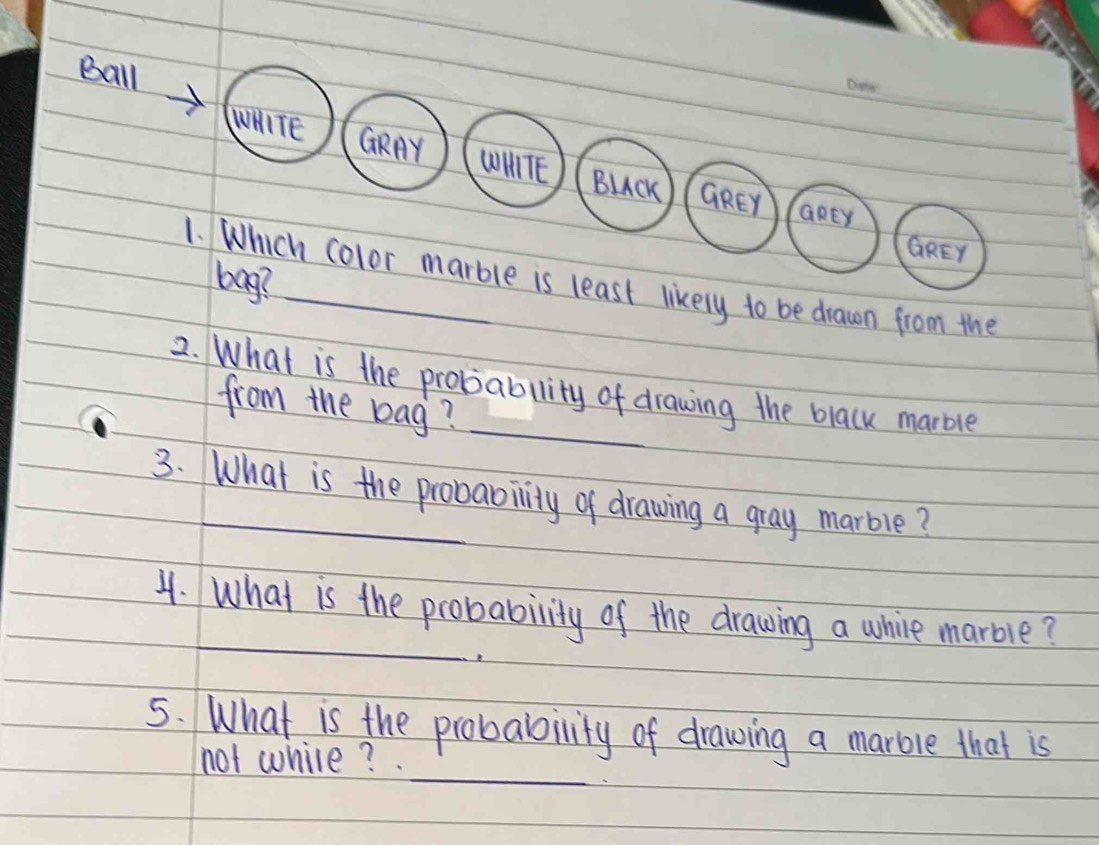 Date:
Ball → WHITE GRAY WHITE BLACK GREY GREY GREY
1. Which color marble is least likely to be drawn from the
bag? ________
2. What is the probability of drawing the black marble
from the bag? ________
3. What is the probability of drawing a gray marble?
________
4. What is the probability of the drawing a while marble?
________.
5. What is the probability of drawing a marble that is
not while?. ________.